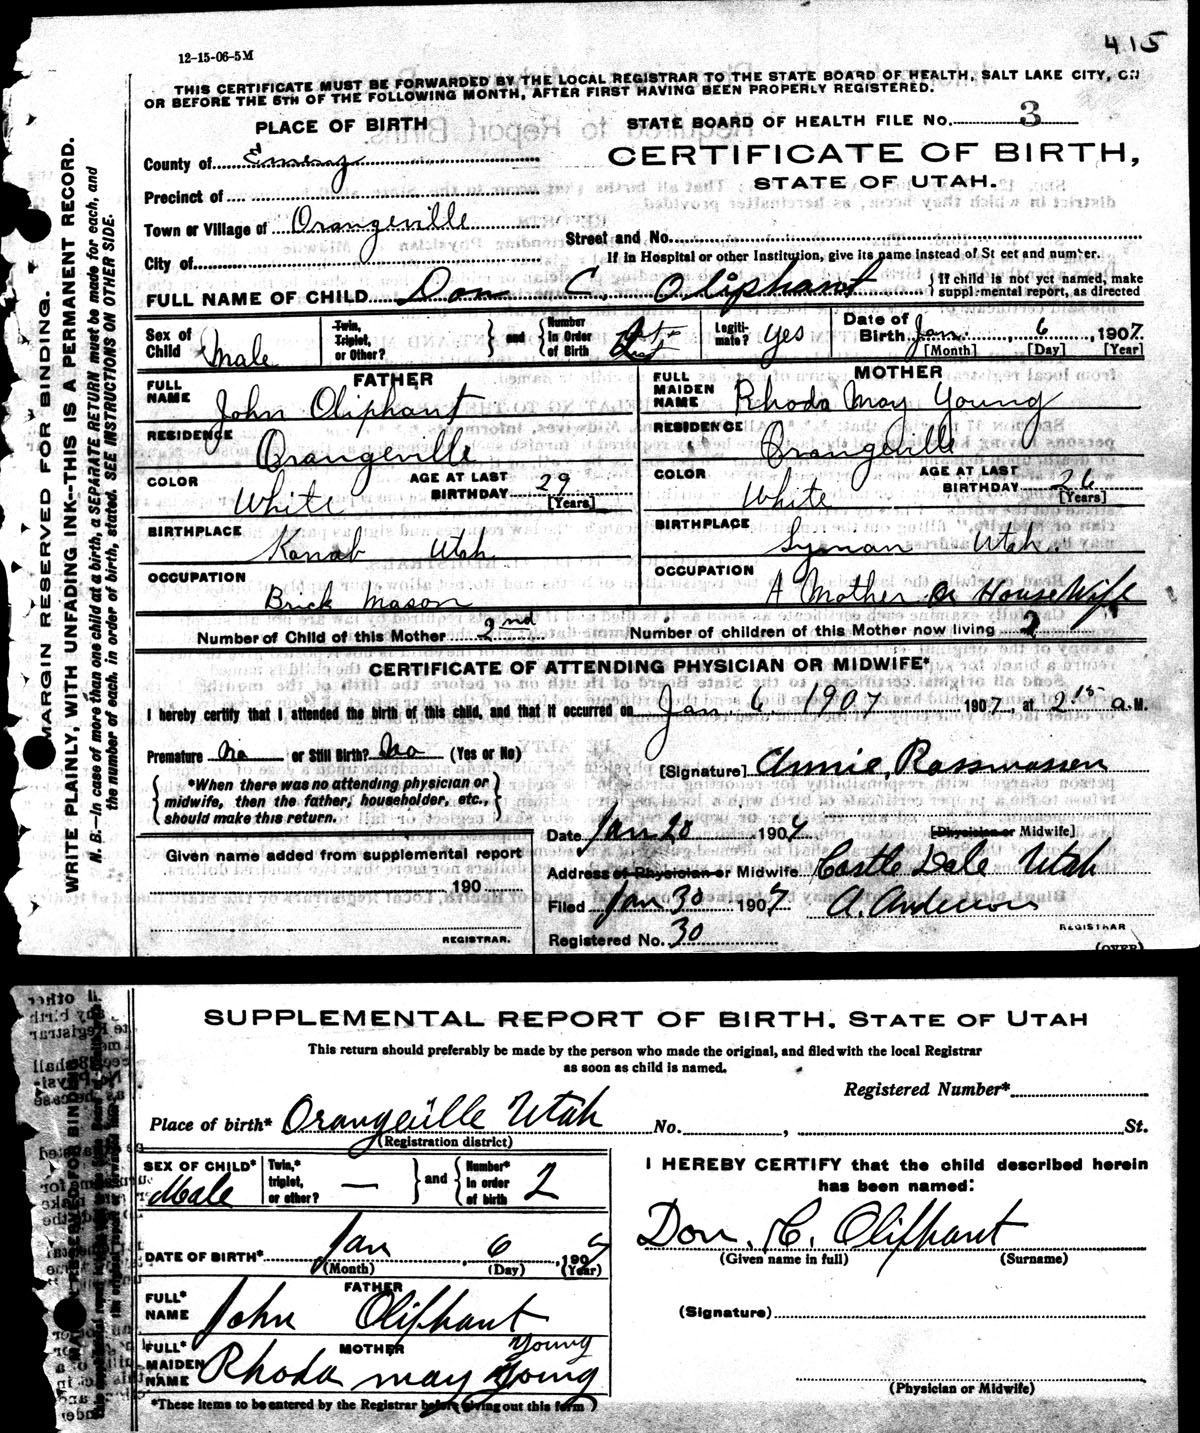 12-15-06-5M
415
THIS CERTIFICATE MUST BE FORWARDED BY THE LOCAL REGISTRAR TO THE STATE BOARD OF HEALTH, SALT LAKE CITY, ON
OR BEFORE THE 5TH OF THE FOLLOWING MONTH, AFTER FIRST HAVING BEEN PROPERLY REGISTERED.
MARGIN RESERVED FOR BINDING.
WRITE PLAINLY, WITH UNFADING INK--THIS IS A PERMANENT RECORD.
N. B.--In case of more than one child at a birth, a SEPARATE RETURN must be made for each, and
the number of each, in order of birth, stated. SEE INSTRUCTIONS ON OTHER SIDE.
PLACE OF BIRTH
STATE BOARD OF HEALTH FILE No. 3
County of Emery
CERTIFICATE OF BIRTH,
STATE OF UTAH.
Precinct of
Town or Village of Orangeville
Street and No.
City of
If in Hospital or other Institution, give its name instead of Street and number.
FULL NAME OF CHILD Don C. Oliphant
If child is not yet named, make supplemental report, as directed
Sex of Child Male
Twin, Triplet, or Other?
and
Number in Order of Birth
Legitimate? yes
Date of Birth Jan. 6, 1907.
[Month] [Day] [Year]
FATHER
FULL NAME John Oliphant
MOTHER
FULL MAIDEN NAME Rhoda May Young
RESIDENCE Orangeville
RESIDENCE Orangeville
COLOR White
AGE AT LAST BIRTHDAY 29 [Years]
COLOR White
AGE AT LAST BIRTHDAY 26 [Years]
BIRTHPLACE Kanab Utah
BIRTHPLACE Lyman Utah.
OCCUPATION Brick Mason
OCCUPATION A Mother or HouseWife
Number of Child of this Mother 2nd
Number of children of this Mother now living 2
CERTIFICATE OF ATTENDING PHYSICIAN OR MIDWIFE*
I hereby certify that I attended the birth of this child, and that it occurred on Jan 6 1907 1907, at 2 15 a. M.
Premature No or Still Birth? No (Yes or No)
[Signature] Annie, Rasmussen
*When there was no attending physician or
midwife, then the father, householder, etc.,
should make this return.
Date Jan 20 1907
[Physician or Midwife]
Given name added from supplemental report
190
REGISTRAR.
Address of Physician or Midwife Castle Dale Utah
Filed Jan 30 1907 A. Anderson
REGISTRAR
Registered No. 30
(OVER)
SUPPLEMENTAL REPORT OF BIRTH, STATE OF UTAH
This return should preferably be made by the person who made the original, and filed with the local Registrar
as soon as child is named.
Registered Number*
Place of birth* Orangeville Utah No. , St.
(Registration district)
SEX OF CHILD* Male
Twin,* triplet, or other? —
and
Number* in order of birth 2
I HEREBY CERTIFY that the child described herein
has been named:
Don. C. Oliphant
(Given name in full) (Surname)
DATE OF BIRTH* Jan 6, 1907
(Month) (Day) (Year)
FATHER
FULL* NAME John Oliphant
(Signature)
MOTHER
Young
FULL* MAIDEN NAME Rhoda may Young
(Physician or Midwife)
*These items to be entered by the Registrar before giving out this form